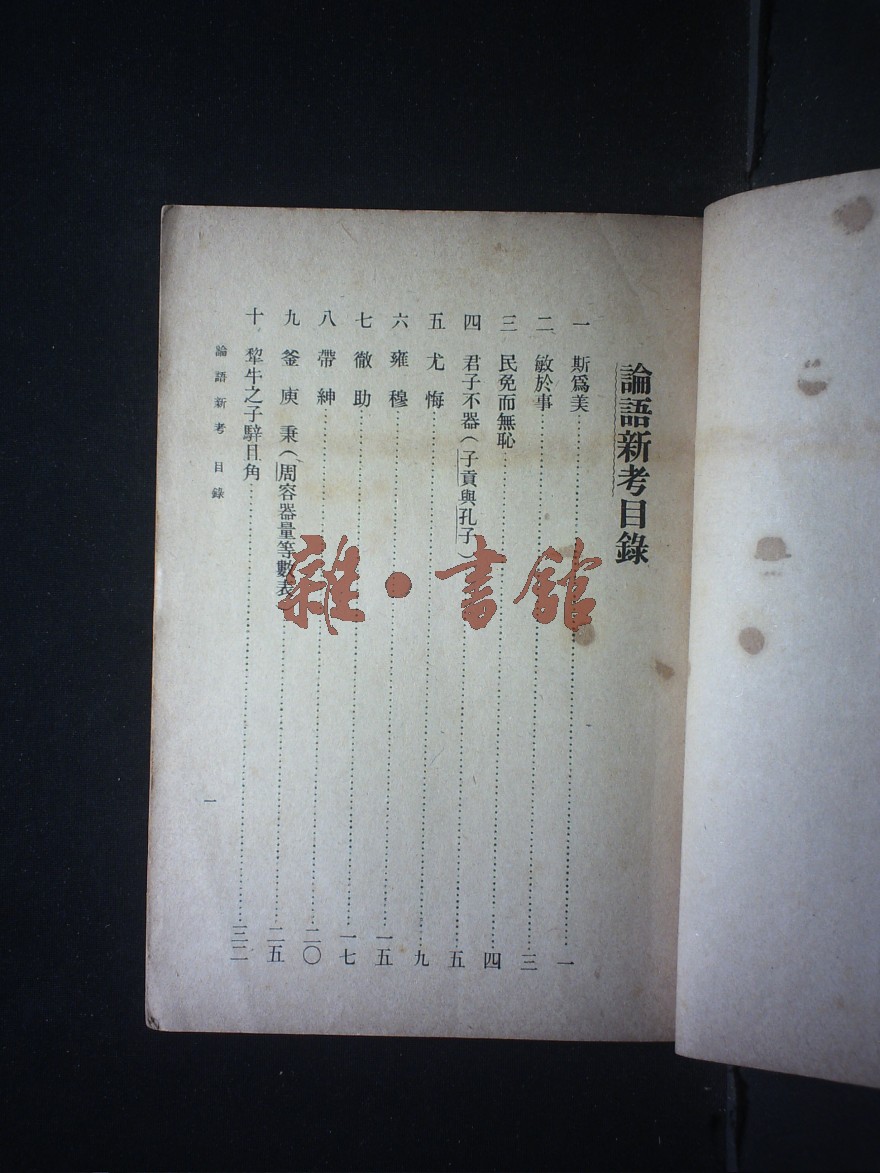 論語新考目錄
一 斯爲美 一
二 敏於事 三
三 民免而無恥 四
四 君子不器（子貢與孔子） 五
五 尤悔 九
六 雍穆 一五
七 徹助 一七
八 帶紳 二〇
九 釜庾秉（周容器量等數表） 二五
十 犂牛之子騂且角 三二
論語新考 目錄
一
雜·書館